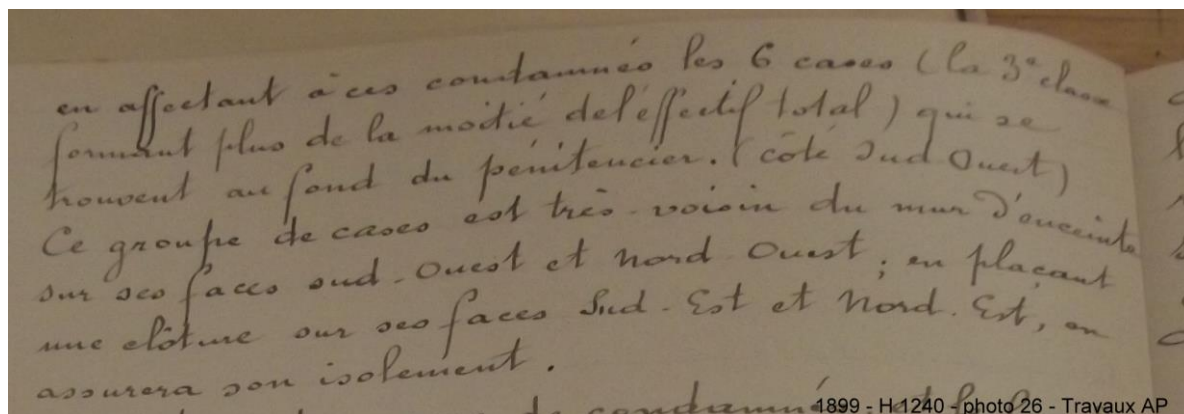 en affectant à ces condamnés les 6 cases (la 3e classe
formant plus de la moitié de l'effectif total) qui se
trouvent au fond du pénitencier. (côté Sud Ouest)
Ce groupe de cases est très-voisin du mur d'enceinte
sur ses faces sud-Ouest et Nord Ouest ; en plaçant
une clôture sur ses faces Sud-Est et Nord-Est, on
assurera son isolement.
de condamnés
1899 - H 1240 - photo 26 - Travaux AP